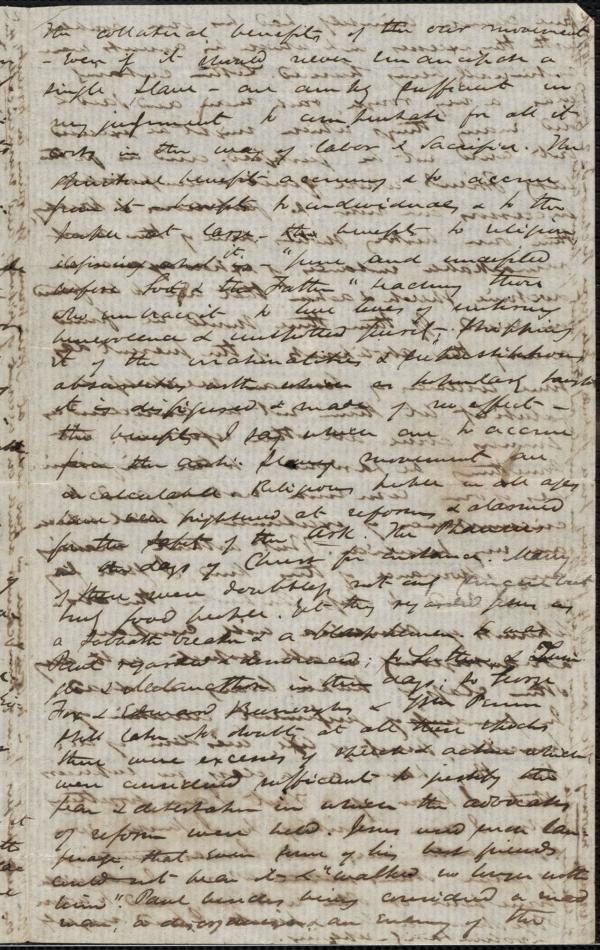 The collateral benefits of the our movement
- Even if it should never emancipate a
single Slave - are amply sufficient in
my judgement to compensate for all it
costs in the way of labor & Sacrifice. The
spiritual benefits accruing & to accrue
from it - benefits to individuals & to the
people at large - the benefit to religion,
it, - "pure and undefiled
before God & the Father" teaching those
who embrace it to live lives of untiring
benevolence & unspotted purity; stripping
it of the & superstitious
absurdities with which as
it is disfigured & made of no effect -
the benefits I say which are to accrue
from the Anti-Slavery movement are
incalculable. Religious people in all ages
have been frightened at reforms & alarmed
for the safety of the Ark. The Pharisees
in the days of Christ for instance. Many
of them were doubtless not only sincere but
truly good people. Yet they regarded Jesus as
a Sabbath breaker & a blasphemer. So was
Paul regarded & denounced; so Luther, & Zwin
gle & Melancthon in their days; so George
Fox & Edward Burroughs & Wm Penn
still later. No doubt at all these epochs
there were excesses of speech & action which
were considered sufficient to justify the
fear & detestation in which the advocates
of reform were held. Jesus used such lan-
guage that even some of his best friends
could not bear it & "walked no longer with
him." Paul besides being considered a mad
man, a & an enemy of the